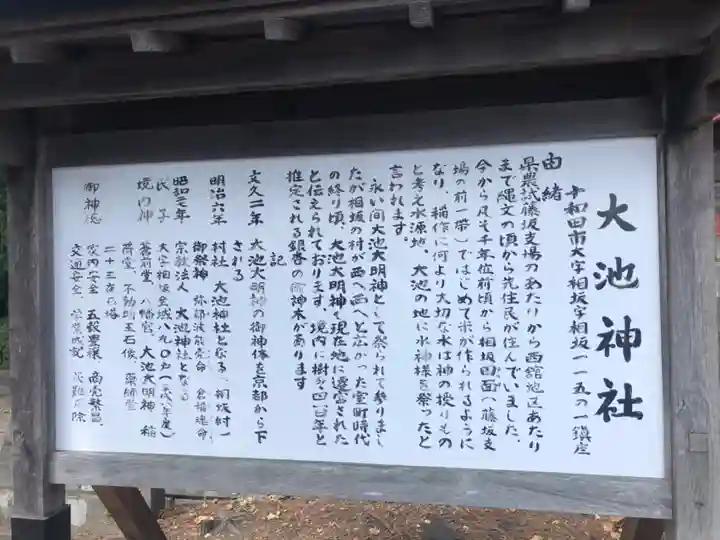 大池神社
十和田市大字相坂字相坂一一五の一鎮座
由緒
県農試藤坂支場のあたりから西舘地区あたり
まで縄文の頃から先住民が住んでいました、
今から凡そ千年位前頃から相坂田面(藤坂支
場の前一帯)ではじめて米が作られるように
なり、稲作に何より大切な水は神の授りもの
と考え水源地、大池の地に水神様を祭ったと
言われます。
永い間大池大明神として祭られて参りまし
たが相坂の村が西へ西へと広がった室町時代
の終り頃、大池大明神も現在地に遷宮された
と伝えられております、境内に樹令四百年と
推定される銀杏の御神木があります
記
文久二年 大池大明神の御神体を京都から下
される
明治六年 村社 大池神社となる、相坂村一
御祭神 弥都波能売命 倉稲魂命
昭和二一年 宗教法人 大池神社となる
氏子 大字相坂全域八九〇戸
境内神 蒼前堂、八幡宮、大池大明神 稲
荷堂、不動明王石像、薬師堂
二十三夜の塔
御神徳 家内安全 五穀豊穣 商売繁盛
交通安全、学業成就